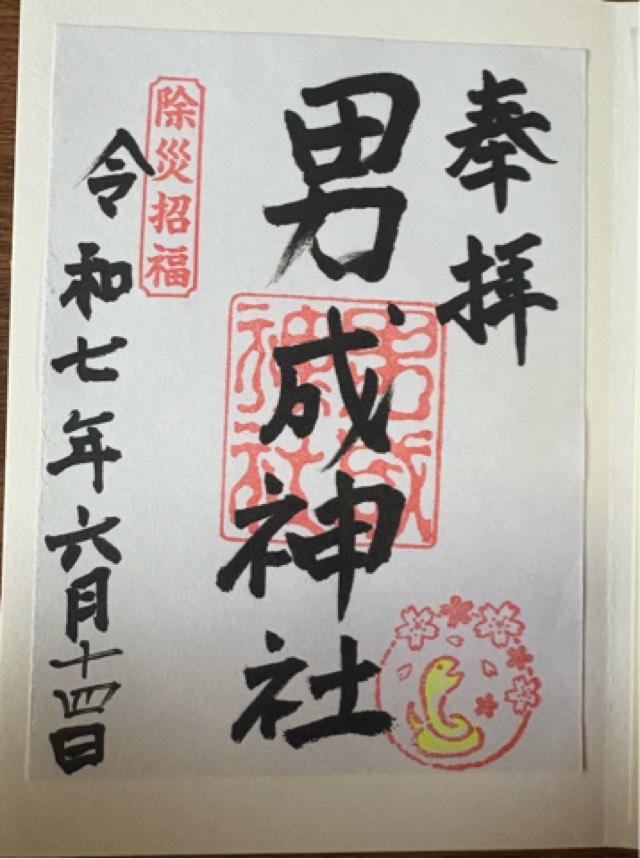 奉拝
男成神社
男成
神社
除災招福
令和七年六月十四日